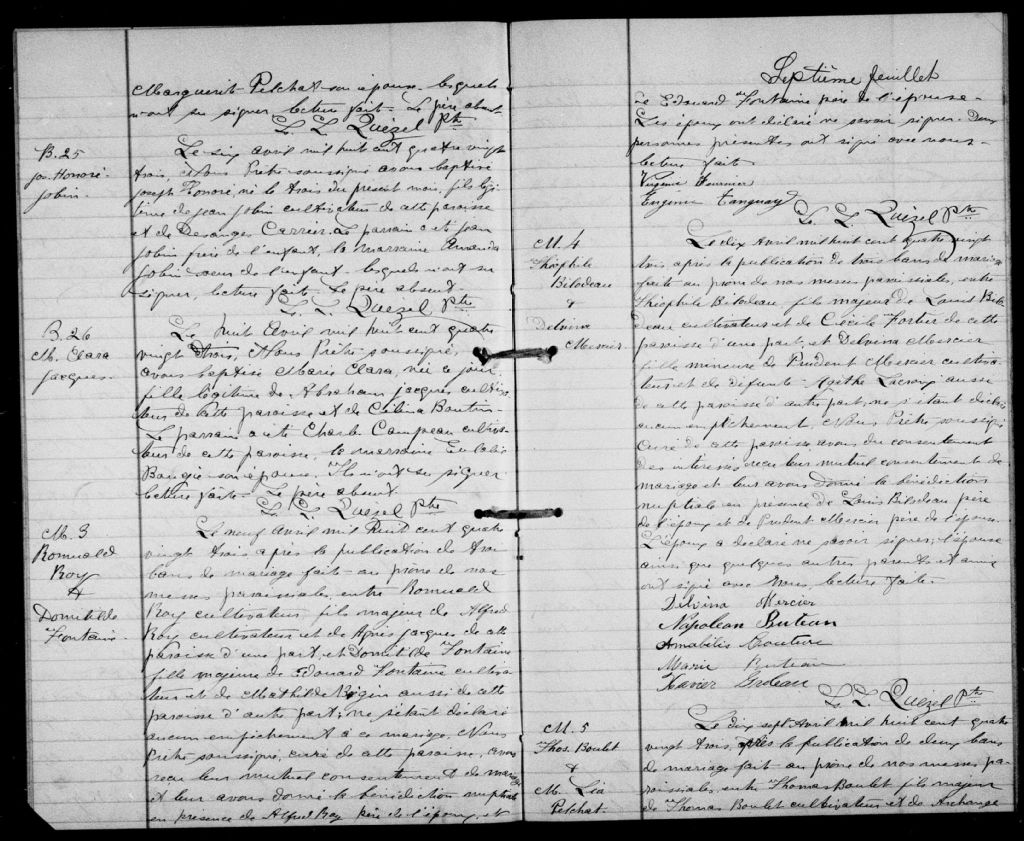 Marguerit Pelchat son épouse lesquels
n'ont su signer lecture fait. Le père absent
L. L. Quézel Ptre
B. 25
Jos. Honoré
Jobin
Le six avril mil huit cent quatre vingt
trois, Nous Prêtre soussigné avons baptisé
Joseph Honoré né le trois du present mois, fils légi-
time de Jean Jobin cultivateur de cette paroisse
et de Desanges Carrier. Le parrain a été Jean
Jobin frère de l'enfant, la marraine Amanda
Jobin soeur de l'enfant lesquels n'ont su
signer, lecture fait. Le père absent.
L. L. Quézel Ptre
B. 26
M. Clara
Jacques
Le huit Avril mil huit cent quatre
vingt trois, Nous Prêtre soussigné,
avons baptisé Marie Clara, née ce jour,
fille légitime de Abraham Jacques cultiva-
teur de cette paroisse et de Célina Boutin
Le parrain a été Charles Campeau cultiva-
teur de cette paroisse, la marraine Eulalie
Baugie son épouse. Ils n'ont su signer
lecture faite. Le père absent.
L. L. Quézel Ptre
M. 3
Romuald
Roy
&
Domitilde
Fontaine
Le neuf Avril mil huit cent quatre
vingt trois après la publication de trois
bans de mariage fait au prône de nos
messes paroissiales, entre Romuald
Roy cultivateur fils majeur de Alfred
Roy cultivateur et de Agnès Jacques de cette
paroisse d'une part, et Domitilde Fontaine
fille majeure de Edouard Fontaine cultiva-
teur et de Mathilde aussi de cette
paroisse d'autre part; ne s'étant déclaré
aucun empêchement à ce mariage, Nous
Prêtre soussigné, curé de cette paroisse, avons
reçu leur mutuel consentement de mariage
et leur avons donné la bénédiction nuptiale
en presence de Alfred Roy père de l'époux, et
Septième feuillet
de Edouard Fontaine père de l'épouse.
Les époux ont déclaré ne savoir signer. Deux
personnes présentes ont signé avec nous
lecture fait.
Fournier
Eugenie Tanguay
L. L. Quézel Ptre
M. 4
Théophile
Bilodeau
&
Delvina
Mercier
Le dix Avril mil huit cent quatre vingt
trois, après la publication de trois bans de mariage
faite au prône de nos messes paroissiales, entre
Théophile Bilodeau fils majeur de Louis Bilo-
deau cultivateur et de Cécile Fortier de cette
paroisse d'une part, et Delvina Mercier
fille mineure de Prudent Mercier cultiva-
teur et de défunte Agathe Lacroix aussi
de cette paroisse d'autre part, ne s'étant déclaré
aucun empêchement, Nous Prêtre soussigné
Curé de cette paroisse avons du consentement
des intéressés, reçu leur mutuel consentement de
mariage et leur avons donné la bénédiction
nuptiale en presence de Louis Bilodeau père
de l'époux et de Prudent Mercier père de l'épouse.
L'époux a déclaré ne savoir signer, l'épouse
ainsi que quelques autres parents et amis
ont signé avec Nous, lecture faite.
Delvina Mercier
Napoleon Buteau
Amabilis Couture
Marie Buteau
Xavier
L. L. Quézel Ptre
M. 5
Thos. Boulet
&
M. Léa
Pelchat.
Le dix sept Avril mil huit cent quatre
vingt trois, après la publication de deux bans
de mariage fait au prône de nos messes pa-
roissiales, entre Thomas Boulet fils majeur
de Thomas Boulet cultivateur et de Archange